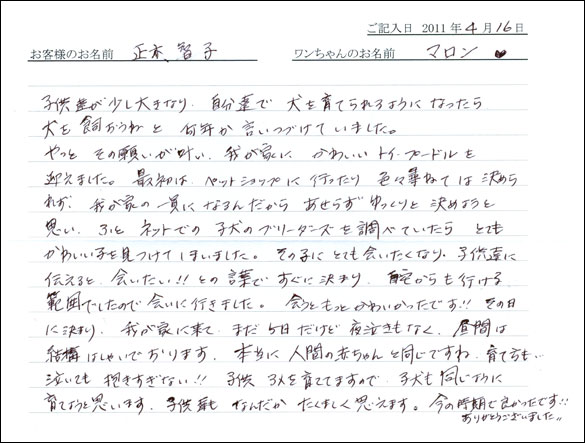 ご記入日 2011年4月16日
お客様のお名前 正木 智子 ワンちゃんのお名前 マロン ♥
子供達が少し大きなり、自分達で犬を育てられるようになったら
犬を飼おうねと 何年か言いつづけていました。
やっと その願いが叶い、我が家に かわいい トイ・プードルを
迎えました。最初は、ペットショップに行ったり 色々尋ねては 決めら
れず、我が家の一員になるんだから あせらず ゆっくりと 決めようと
思い、ふと ネットでの 子犬のブリーダーズを調べていたら とても
かわいい子を見つけてしまいました。その子にとても会いたくなり、子供達に
伝えると、会いたい!!との言葉で すぐに決まり、自宅からも行ける
範囲でしたので会いに行きました。会うともっとかわいかったです!! その日
に決まり、我が家に来て まだ5日だけど 夜泣きもなく、昼間は
結構はしゃいでおります。本当に 人間の赤ちゃんと同じですね、育て方も、
泣いても 抱きすぎない!! 子供 3人を育てますので、子犬も同じように
育てようと思います。子供達も なんだか たくましく思えます。今の時期で良かったです!!
ありがとうございました。